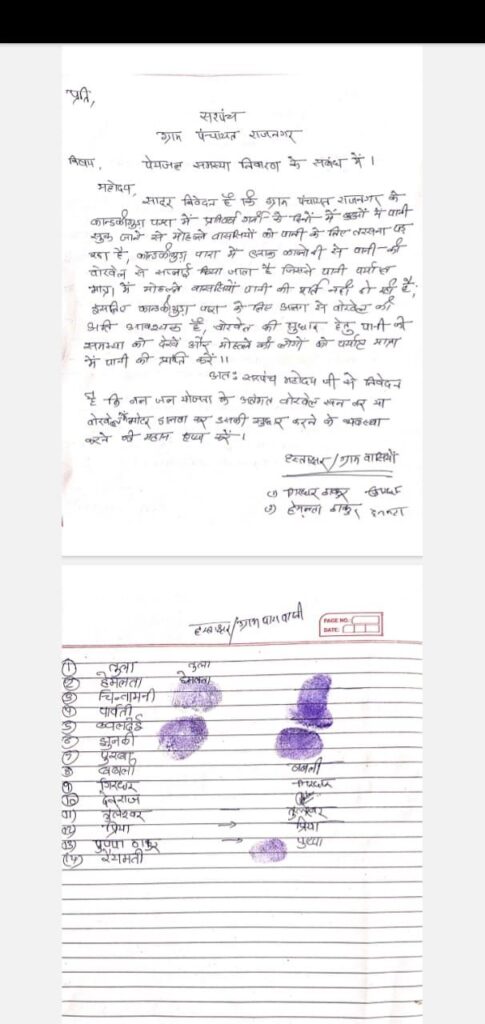 प्रति,
सरपंच
ग्राम पंचायत राजनगर
विषय, पेयजल समस्या निवारण के सबंध में ।
महोदय,
सादर निवेदन है कि ग्राम पंचायत राजनगर के
पारा में प्रतिवर्ष गर्मी के दिनों में कुओं में पानी
सुख जाने से मोहल्ले वासियों को पानी के लिए तरसना पड़
रहा है, पारा में से पानी को
बोरवेल से सप्लाई किया जाता है जिससे पानी पर्याप्त
मात्रा में मोहल्ले वासियों पानी की नहीं हो रही है;
इसलिए पारा के लिए अलग से बोरवेल की
अति आवश्यक है, बोरवेल की सुधार हेतु पानी की
समस्या को देखें और मोहल्ले की लोगों को पर्याप्त मात्रा
में पानी की प्राप्ति करें ।।
अतः सरपंच महोदय जी से निवेदन
है कि योजना के अंतर्गत बोरवेल खनन कर या
बोरवेल में मोटर डालवा कर उसकी सुधार करने के व्यवस्था
करने की महान कृपा करें ।
हस्ताक्षर/ग्राम वासियों
ठाकुर
हेमलता ठाकुर
हस्ताक्षर/ग्राम वासी
PAGE NO.:
DATE:
① तुला तुला
② हेमलता हेमलता
③ चिन्तामनी
④ पार्वती
⑤
⑥ झुनकी
⑦
⑧ बबली बबली
⑨ गिरधर
⑩ देवराज
11) तुलेश्वर — तुलेश्वर
12) प्रिया → प्रिया
13) पुष्पा ठाकुर → पुष्पा
(14)